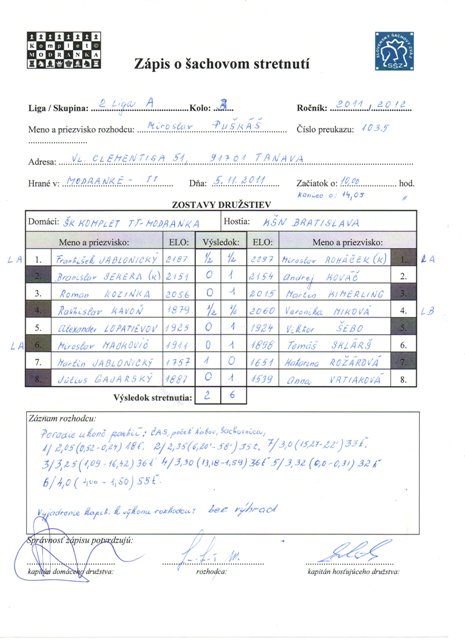 Komplet
MODRANKA
SLOVENSKÝ ŠACHOVÝ ZVÄZ
SŠZ
Zápis o šachovom stretnutí
Liga / Skupina: 2 liga A Kolo: 3 Ročník: 2011 / 2012
Meno a priezvisko rozhodcu: Miroslav PUŠKÁŠ Číslo preukazu: 1035
Adresa: VL. CLEMENTISA 51, 91701 TRNAVA
Hrané v: MODRANKE - TT Dňa: 5.11.2011 Začiatok o: 10,00 hod.
KONIEC O: 14,05
ZOSTAVY DRUŽSTIEV
Domáci: ŠK KOMPLET TT-MODRANKA Hostia: KŠN BRATISLAVA
Meno a priezvisko: ELO: Výsledok: ELO: Meno a priezvisko:
LA 1. František JABLONICKÝ 2187 ½ ½ 2297 Miroslav ROHÁČEK (K) 1. LA
2. Branislav SEKERA (K) 2151 0 1 2154 Andrej KOVÁČ 2.
3. Roman KOZINKA 2056 0 1 2015 Martin KIMERLING 3.
4. Rastislav KAVOŇ 1879 ½ ½ 2060 Veronika MIKOVÁ 4. LB
5. Alexander LOPATIEVOV 1925 0 1 1924 Viktor ŠEBO 5.
LA 6. Miroslav MACKOVIČ 1911 0 1 1896 Tomáš SKLÁRŠ 6.
7. Martin JABLONICKÝ 1757 1 0 1651 Katarína ROŽÁROVÁ 7.
8. Július GAJARSKÝ 1887 0 1 1539 Anna VATIAKOVÁ 8.
Výsledok stretnutia: 2 6
Záznam rozhodcu:
Poradie ukonč. partií: ČAS, počet ťahov, šachovnica,
1/ 2,05 (0,52-0,29) 18ť. 2/ 2,35 7/ 3,0 33ť.
3/ 3,25 (1,09-16,42) 36ť 4/ 3,30 36ť 5/ 3,32 32ť
6/ 4,0 55ť.
Vyjadrenie kapit. k výkonu rozhodcu: bez výhrad
Správnosť zápisu potvrdzujú:
kapitán domáceho družstva: rozhodca: kapitán hosťujúceho družstva: